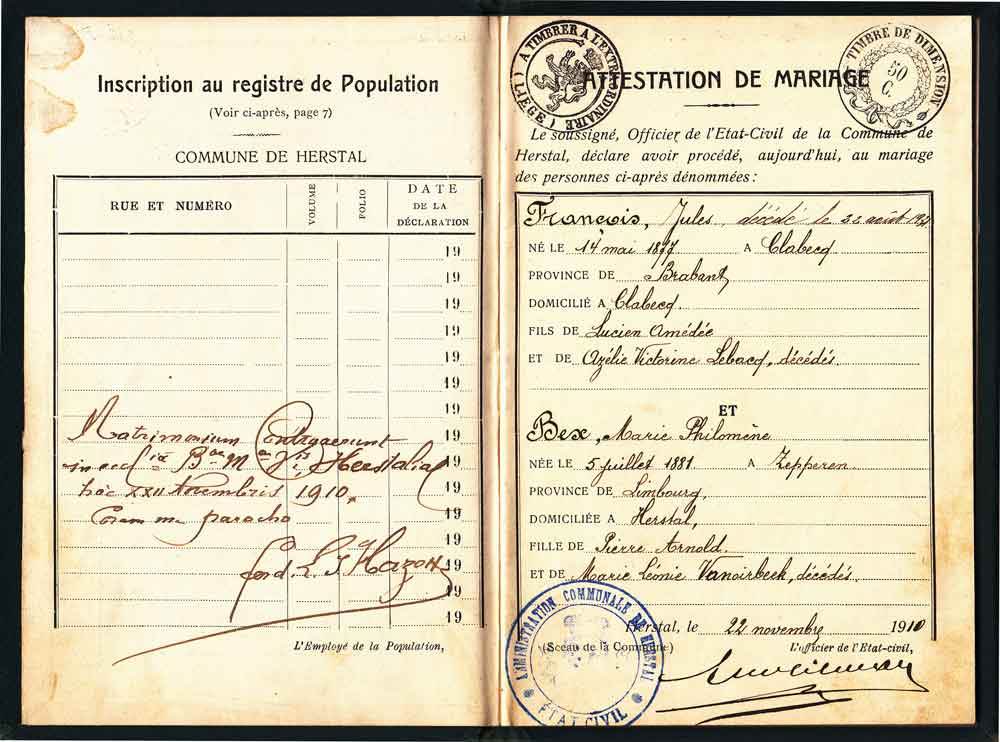 Inscription au registre de Population
(Voir ci-après, page 7)
COMMUNE DE HERSTAL
RUE ET NUMÉRO
VOLUME
FOLIO
DATE
DE LA
DÉCLARATION
19
19
19
19
19
19
19
19
19
19
19
19
19
19
19
Matrimonium Contraxerunt
in eccl
hâc XXII Novembris 1910.
Coram me parocho
L'Employé de la Population,
A TIMBRER A L'EXTRAORDINAIRE
(LIÉGE)
TIMBRE DE DIMENSION
50
C.
ATTESTATION DE MARIAGE
Le soussigné, Officier de l'Etat-Civil de la Commune de
Herstal, déclare avoir procédé, aujourd'hui, au mariage
des personnes ci-après dénommées :
François, Jules, décédé le 22 août
NÉ LE 14 mai 1877 A Clabecq
PROVINCE DE Brabant,
DOMICILIÉ A Clabecq.
FILS DE Lucien Amédée
ET DE Azélie Victorine Lebacq, décédés.
ET
Bex, Marie Philomène
NÉE LE 5 juillet 1881 A Zepperen.
PROVINCE DE Limbourg,
DOMICILIÉE A Herstal,
FILLE DE Pierre Arnold.
ET DE Marie Léonie Vanoirbeek, décédés.
Herstal, le 22 novembre 1910
(Sceau de la Commune) L'officier de l'Etat-civil,
ADMINISTRATION COMMUNALE DE HERSTAL
ÉTAT CIVIL